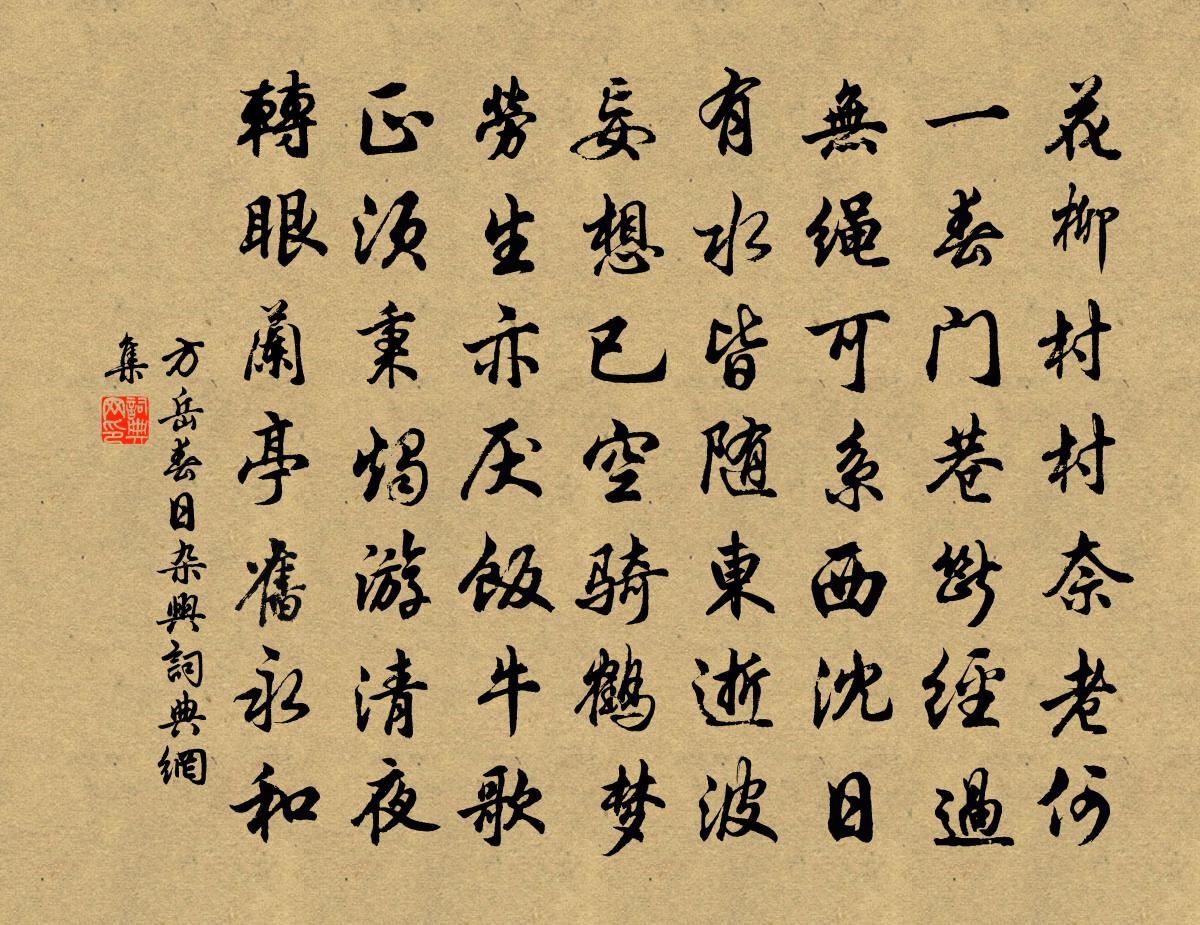 花柳村村奈老何
一春門巷斷經過
無繩可系西沈日
有水皆随東逝波
妄想已空骑鶴梦
勞生亦厌飯牛歌
正须秉燭游清夜
轉眼蘭亭舊永和
方岳春日杂興詞典網
集
詞典网印